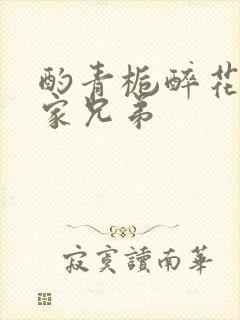 酌青栀醉花
家兄弟
寂寞讀南華